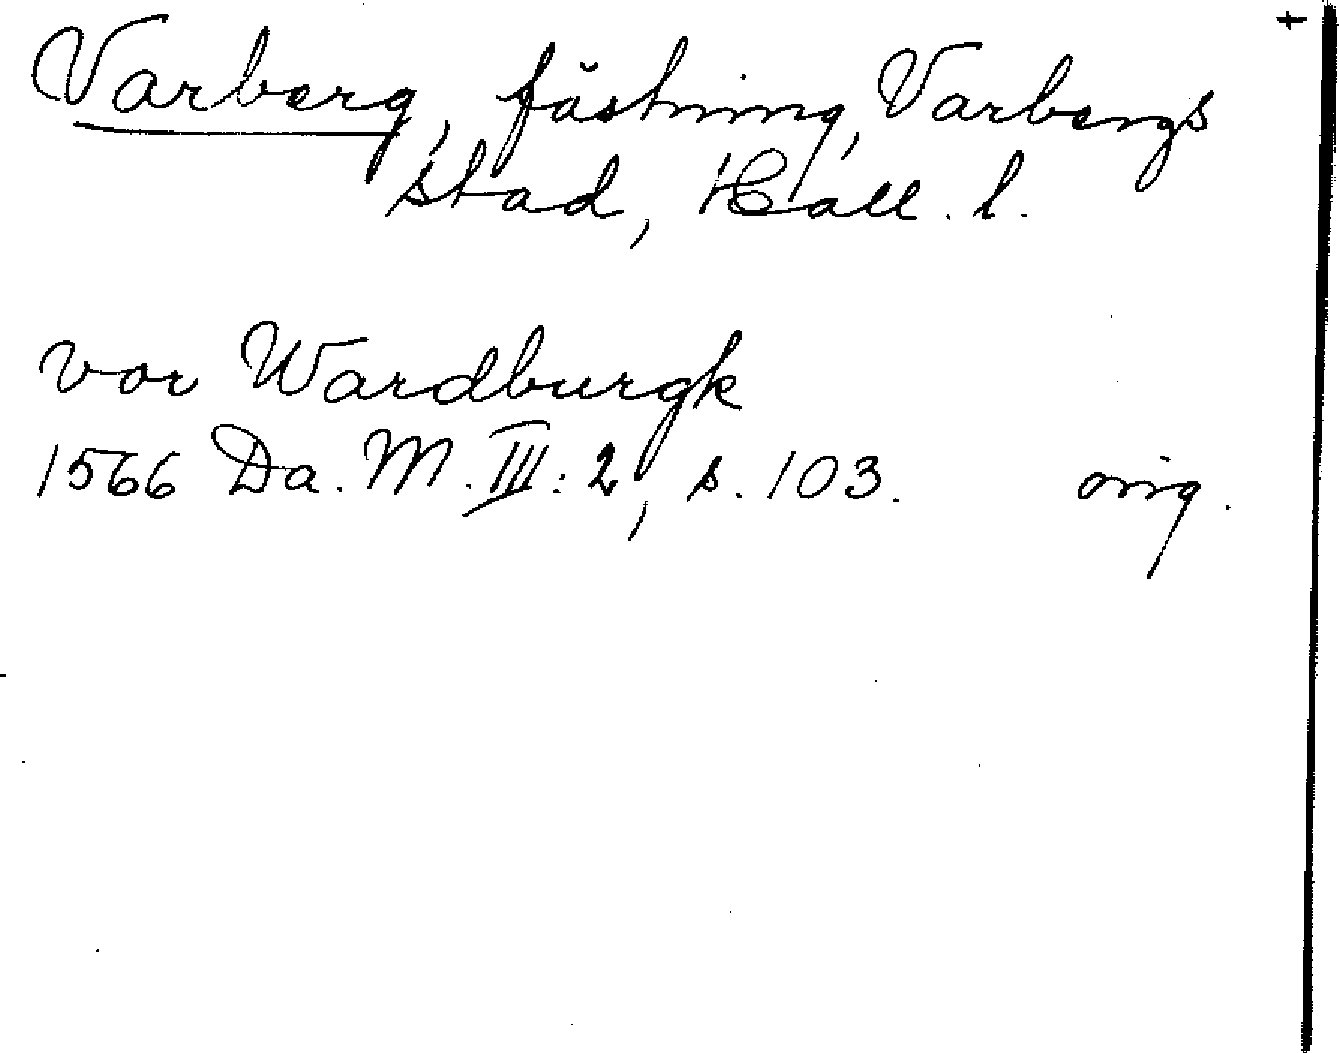 Varberg, fästning, Varbergs
stad, Hall. l.
vor Wardburgk
1566 Da. M. III: 2, s. 103. orig.